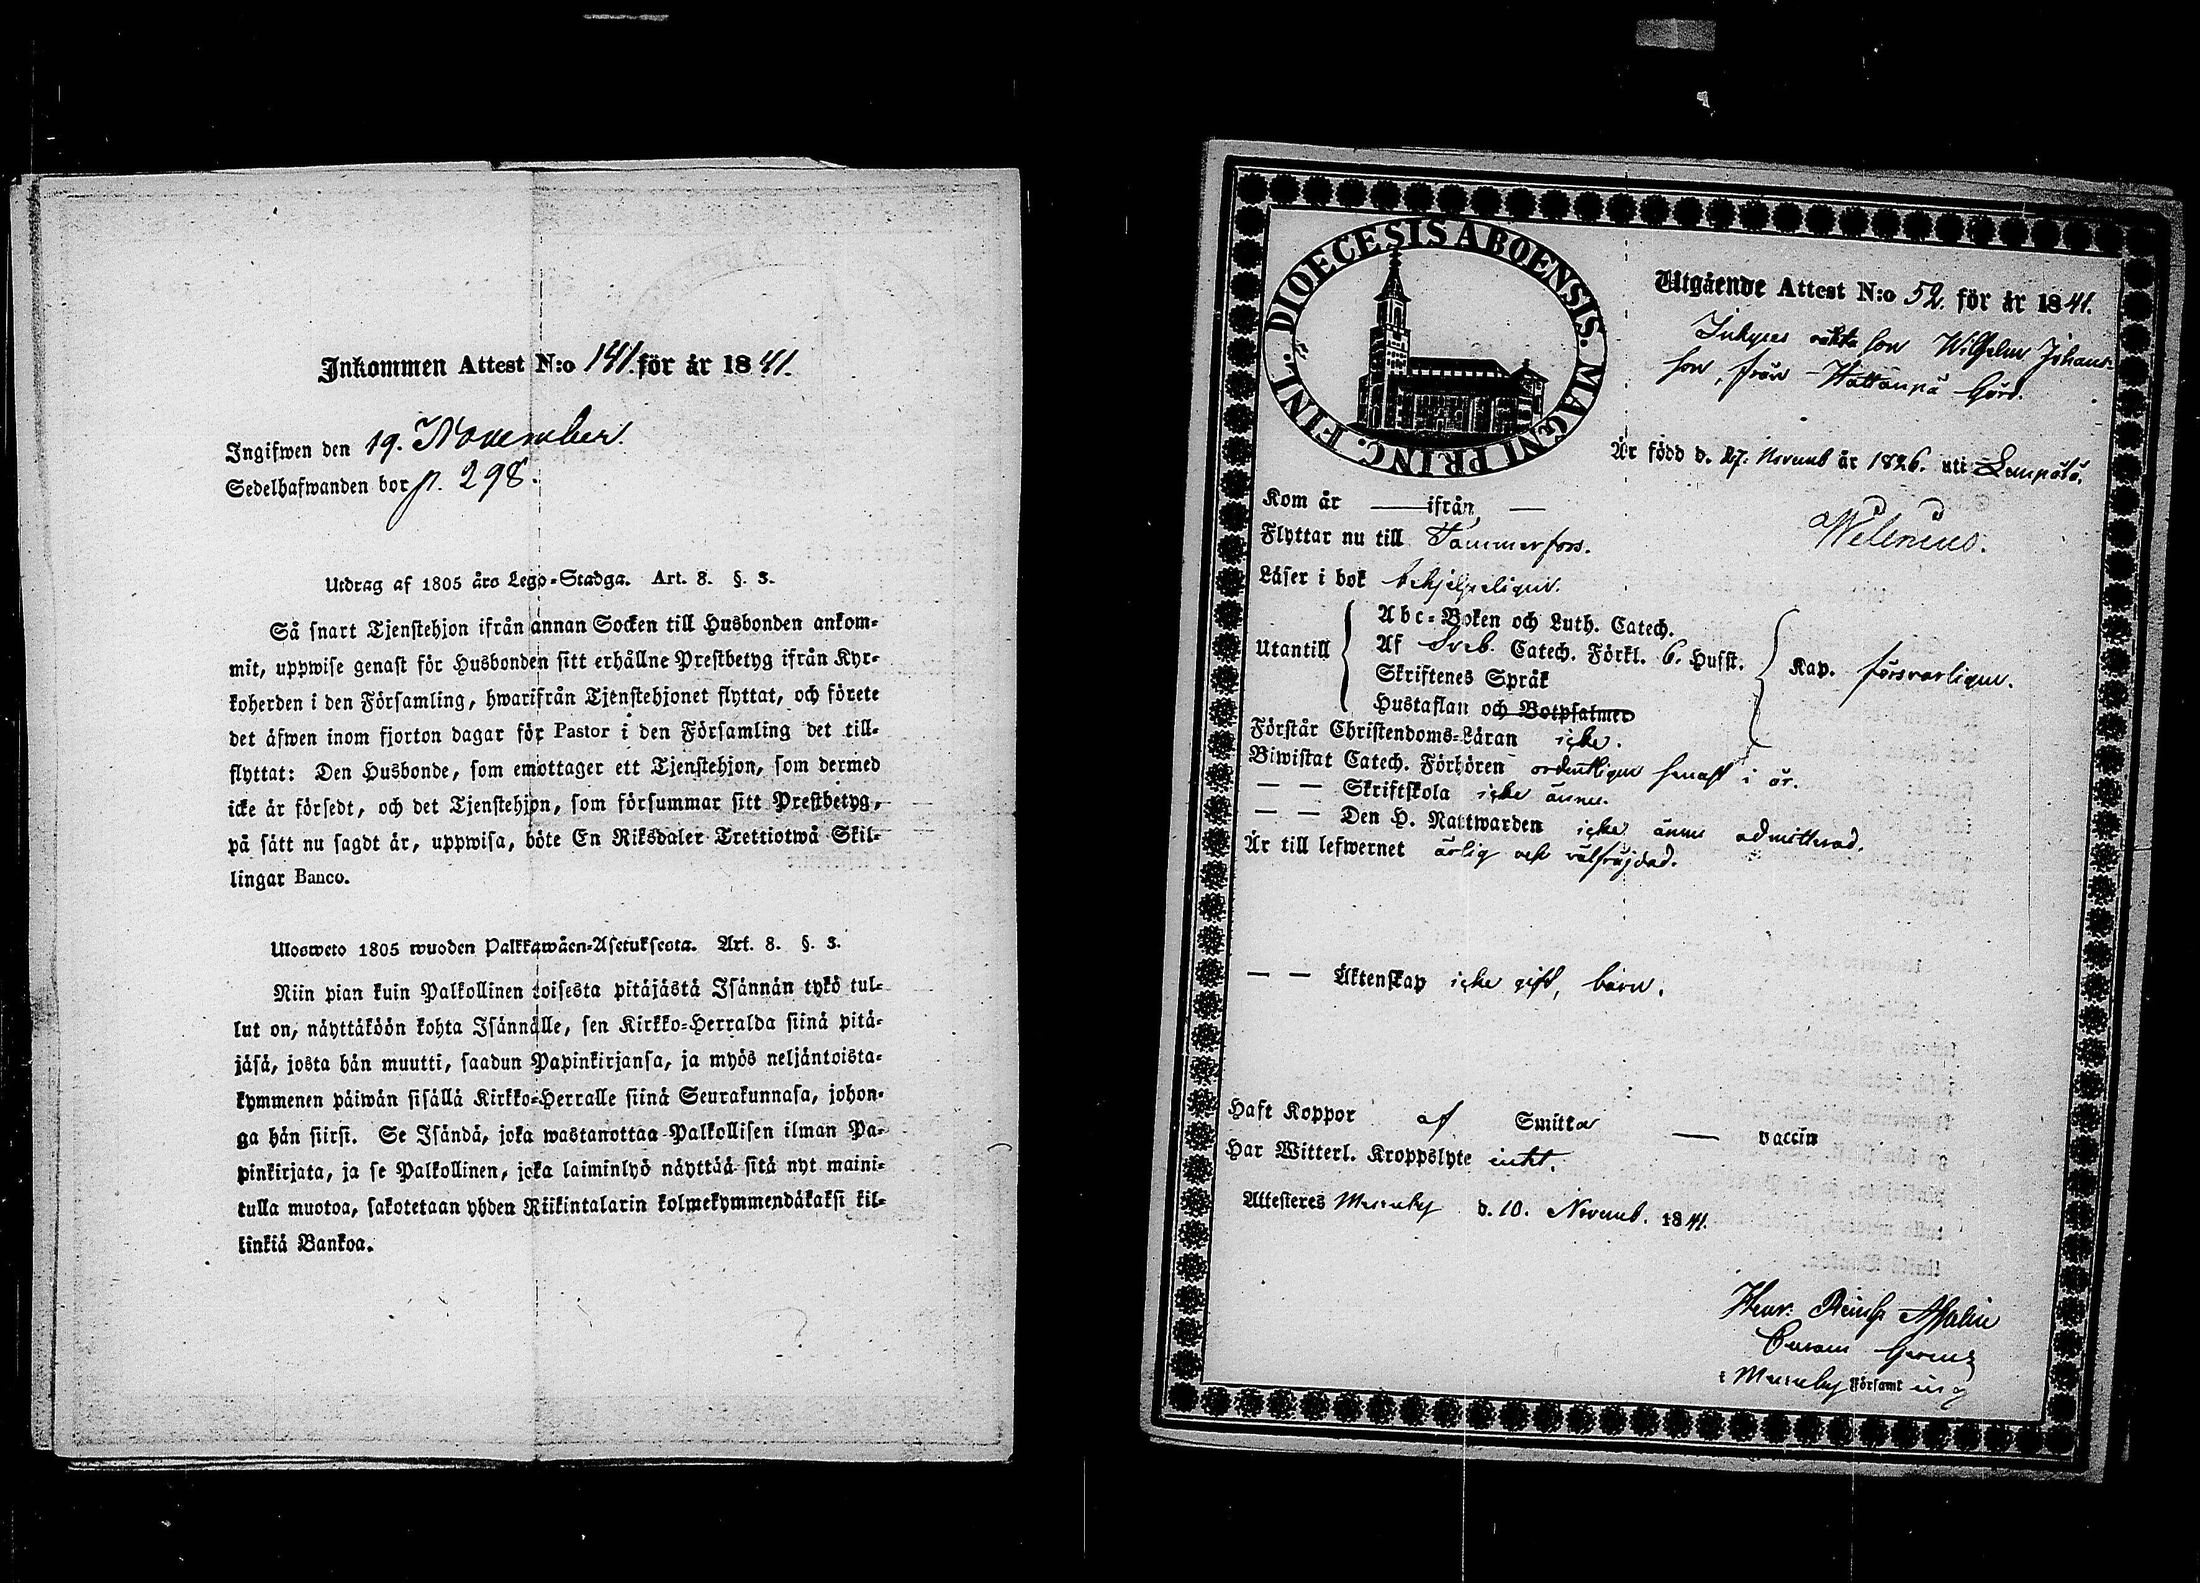 Inkommen Attest N:o 141. för år 1841.
Ingifwen den 19. November.
Sedelhafwanden bor p. 298.
Utdrag af 1805 års Lego-Stadga. Art. 8. §. 3.
Så snart Tjenstehjon ifrån annan Socken till Husbonden ankom-
mit, uppwise genast för Husbonden sitt erhållne Prestbetyg ifrån Kyr-
koherden i den Församling, hwarifrån Tjenstehjonet flyttat, och förete
det äfwen inom fjorton dagar för Pastor i den Församling det till-
flyttat: Den Husbonde, som emottager ett Tjenstehjon, som dermed
icke är försedt, och det Tjenstehjon, som försummar sitt Prestbetyg,
på sätt nu sagdt är, uppwisa, böte En Riksdaler Trettiotwå Skil-
lingar Banco.
Ulosweto 1805 wuoden Palkkawäen-Asetuksesta. Art. 8. §. 3.
Niin pian kuin Palkollinen toisesta pitäjästä Isännän tykö tul-
lut on, näyttäköön kohta Isännälle, sen Kirkko-Herralda siinä pitä-
jäsä, josta hän muutti, saadun Papinkirjansa, ja myös neljäntoista-
kymmenen päiwän sisällä Kirkko-Herralle siinä Seurakunnasa, johon-
ga hän siirsi. Se Isändä, joka wastanottaa Palkollisen ilman Pa-
pinkirjata, ja se Palkollinen, joka laiminlyö näyttää sitä nyt maini-
tulla muotoa, sakotetaan yhden Riikintalarin kolmekymmendäkaksi kil-
linkiä Bankoa.
DIOECESIS ABOENSIS. MAGNI PRINC. FINL.
Utgående Attest N:o 52. för år 1841.
son Wilhelm Johans-
son, från Gård.
Är född d. 27. Novemb år 1826. uti Lempälä.
Welenius.
Kom år — ifrån —
Flyttar nu till Tammerfors.
Läser i bok behjelpeligen.
Utantill
Abc-Boken och Luth. Catech.
Af Sveb. Catech. Förkl. 6. Husst.
Skriftenes Språk
Hustaflan och Botpsalmer
Kap. försvarligen.
Förstår Christendoms-Läran icke.
Biwistat Catech. Förhören ordentligen senast i år.
— — Skriftskola icke ännu.
— — Den H. Nattwarden icke ännu admitterad.
Är till lefwernet ärlig och välfräjdad.
— — Äktenskap icke gift, barn.
Haft Koppor af Smitta — vaccin
Har Witterl. Kroppslyte intet.
Attesteres Messuby d. 10. Novemb. 1841.
Henr:
i Messuby Församling